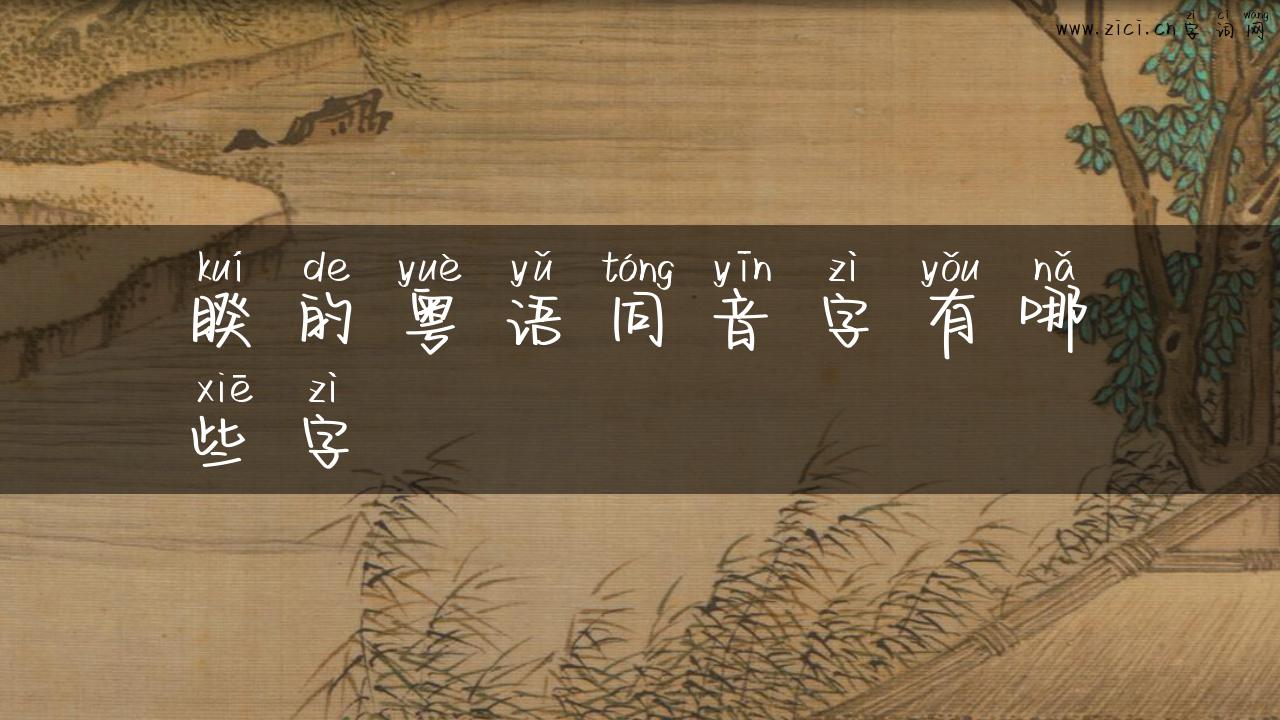 zì cí wǎng
www.zici.cn字词网
kuí de yuè yǔ tóng yīn zì yǒu nǎ
睽的粤语同音字有哪
xiē zì
些字